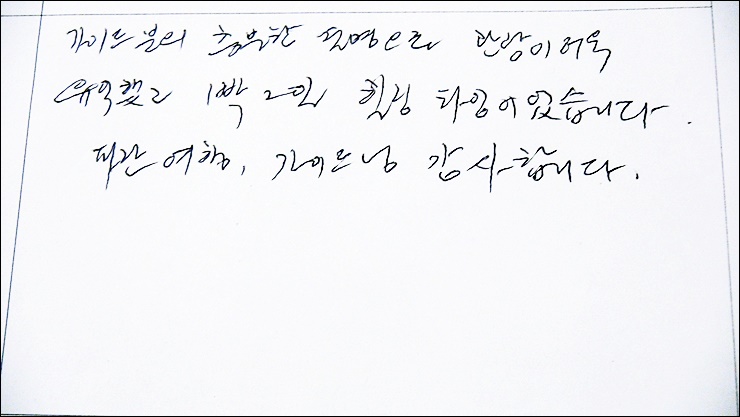 가이드분의 충분한 설명으로 관광이 더욱
유익했고 1박 2일 힐링 타임이었습니다.
여행, 가이드님 감사합니다.